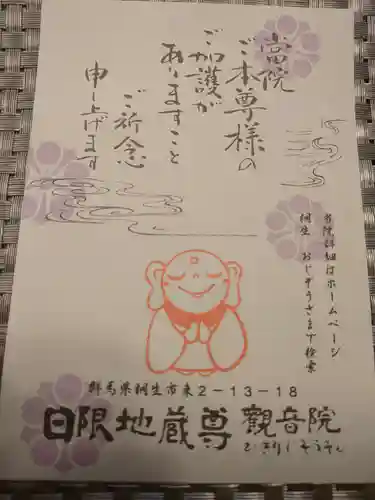 當院
ご本尊様の
ご加護が
ありますこと
ご祈念
申し上げます
当院詳細はホームページ
桐生 おじぞうさまで検索
群馬県桐生市東2-13-18
日限地蔵尊 觀音院